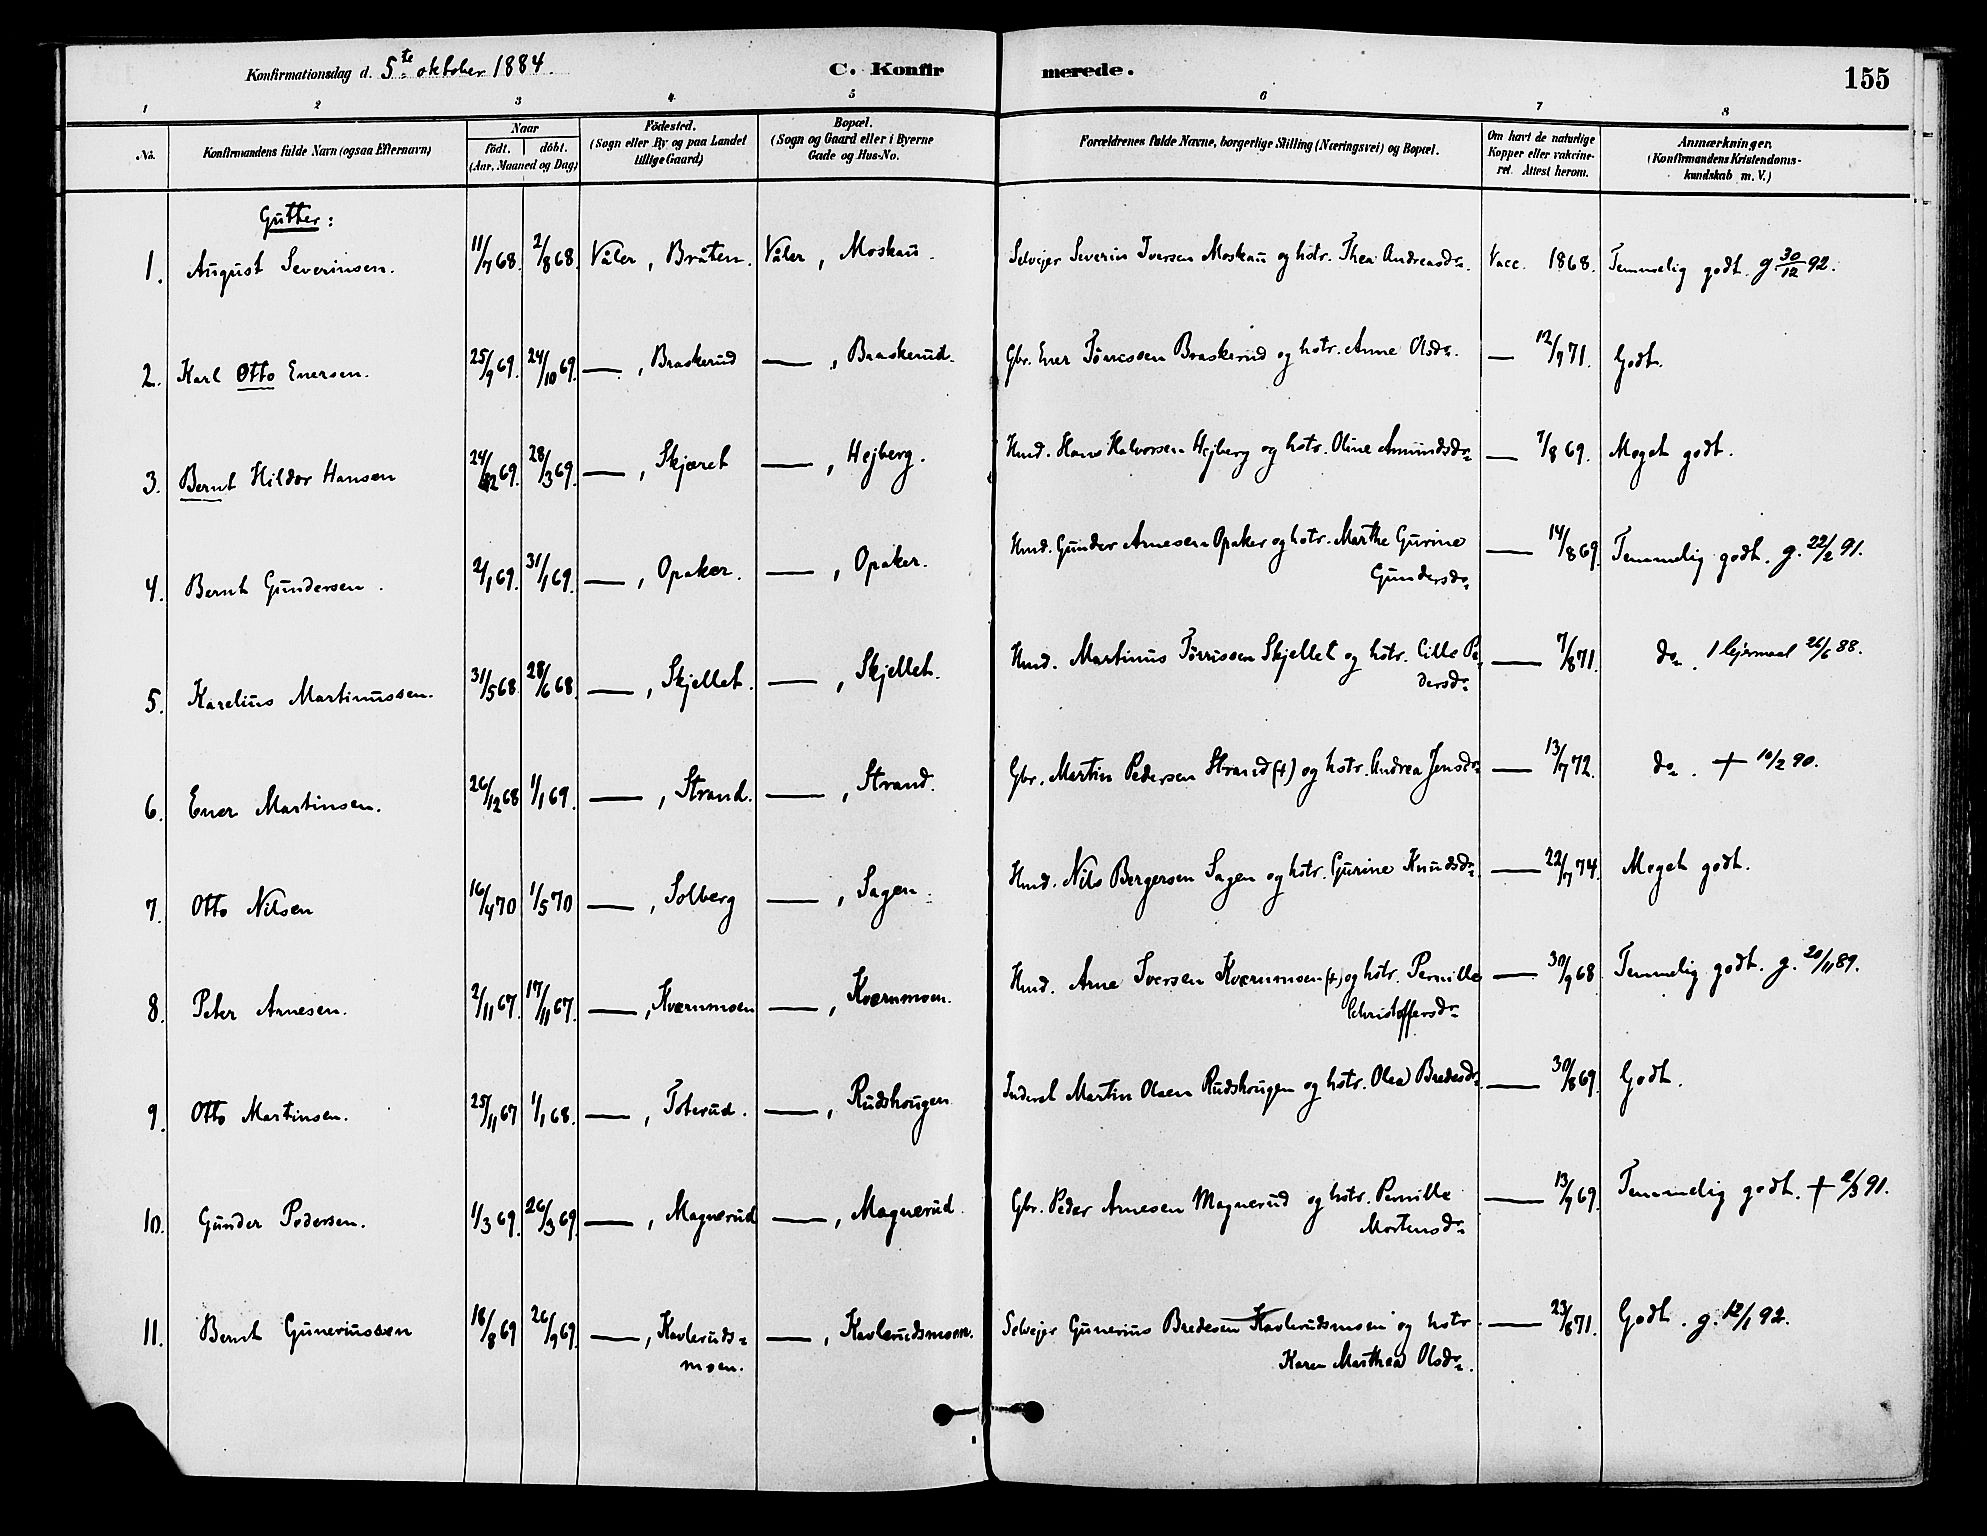 Konfirmationsdag d. 5te oktober 1884. C. Konfirmerede. 155
1 2 3 4 5 6 7 8
No. Konfirmandens fulde Navn (ogsaa Efternavn) Naar født. døbt. (Aar, Maaned og Dag) Fødested. (Sogn eller By og paa Landet tillige Gaard) Bopæl. (Sogn og Gaard eller i Byerne Gade og Hus-No. Forældrenes fulde Navne, borgerlige Stilling (Næringsvei) og Bopæl. Om havt de naturlige Kopper eller vakcineret. Attest herom. Anmærkninger. (Konfirmandens Kristendomskundskab m. V.)
Gutter:
1. August Severinsen. 11/7 68. 2/8 68. Våler, Bråten. Våler, Moskau. Selvejer Severin Iversen Moskau og hstr. Thea Andreasdr. Vacc. 1868. Temmelig godt. g 30/12 92.
2. Karl Otto Enersen. 25/9 69. 24/10 69. — , Braskerud — , Braskerud. Gbr. Ener Tørrissen Braskerud og hstr. Anne Olsdr. — 12/9 71. Godt.
3. Bernt Hildor Hansen 24/2 69. 28/3 69. — , Skjæret — , Hejberg. Hmd. Hans Halvorsen Hejberg og hstr. Oline Amundsdr — 7/8 69. Meget godt.
4. Bernt Gundersen. 2/1 69. 31/1 69. — , Opaker. — , Opaker. Hmd. Gunder Arnesen Opaker og hstr. Marthe Gurine — 14/8 69. Temmelig godt. g. 22/2 91.
Gundersdr
5. Karelius Martinussen. 31/5 68. 28/6 68. — , Skjellet. — , Skjellet. Hmd. Martinus Tørrissen Skjellet og hstr. Cille Pe- — 7/8 71. do. 1 lejermaal 26/6 88.
dersdr
6. Ener Martinsen. 26/12 68 1/1 69. — , Strand. — , Strand. Gbr. Martin Pedersen Strand (+) og hstr. Andrea Jensdr — 13/7 72. do. + 10/2 90.
7. Otto Nilsen 16/4 70 1/5 70 — , Solberg — , Sagen. Hmd. Nils Bergersen Sagen og hstr. Gurine Knudsdr — 22/7 74. Meget godt.
8. Peter Arnesen. 2/11 67. 17/11 67. — , Kværnmoen — , Kværnmoen. Hmd. Arne Iversen Kværnmoen (+) og hstr. Pernille — 30/9 68 Temmelig godt. g. 20/11 89.
Christoffersdr
9. Otto Martinsen. 25/11 67 1/1 68. — , Toterud. — , Rudshougen Inderst Martin Olsen Rudshougen og hstr. Olea Bredesdr — 30/8 69. Godt.
10. Gunder Pedersen. 1/3 69. 26/3 69. — , Magnerud — , Magnerud. Gbr. Peder Arnesen Magnerud og hstr. Pernille — 13/9 69. Temmelig godt. + 2/3 91.
Mortensdr
11. Bernt Guneriussen 18/8 69 26/9 69. — , Kavleruds- — , Kavlerudsmoen. Selvejer Gunerius Bredesen Kavlerudsmoen og hstr — 23/8 71. Godt. g. 12/1 92.
moen. Karen Marthea Olsdr.